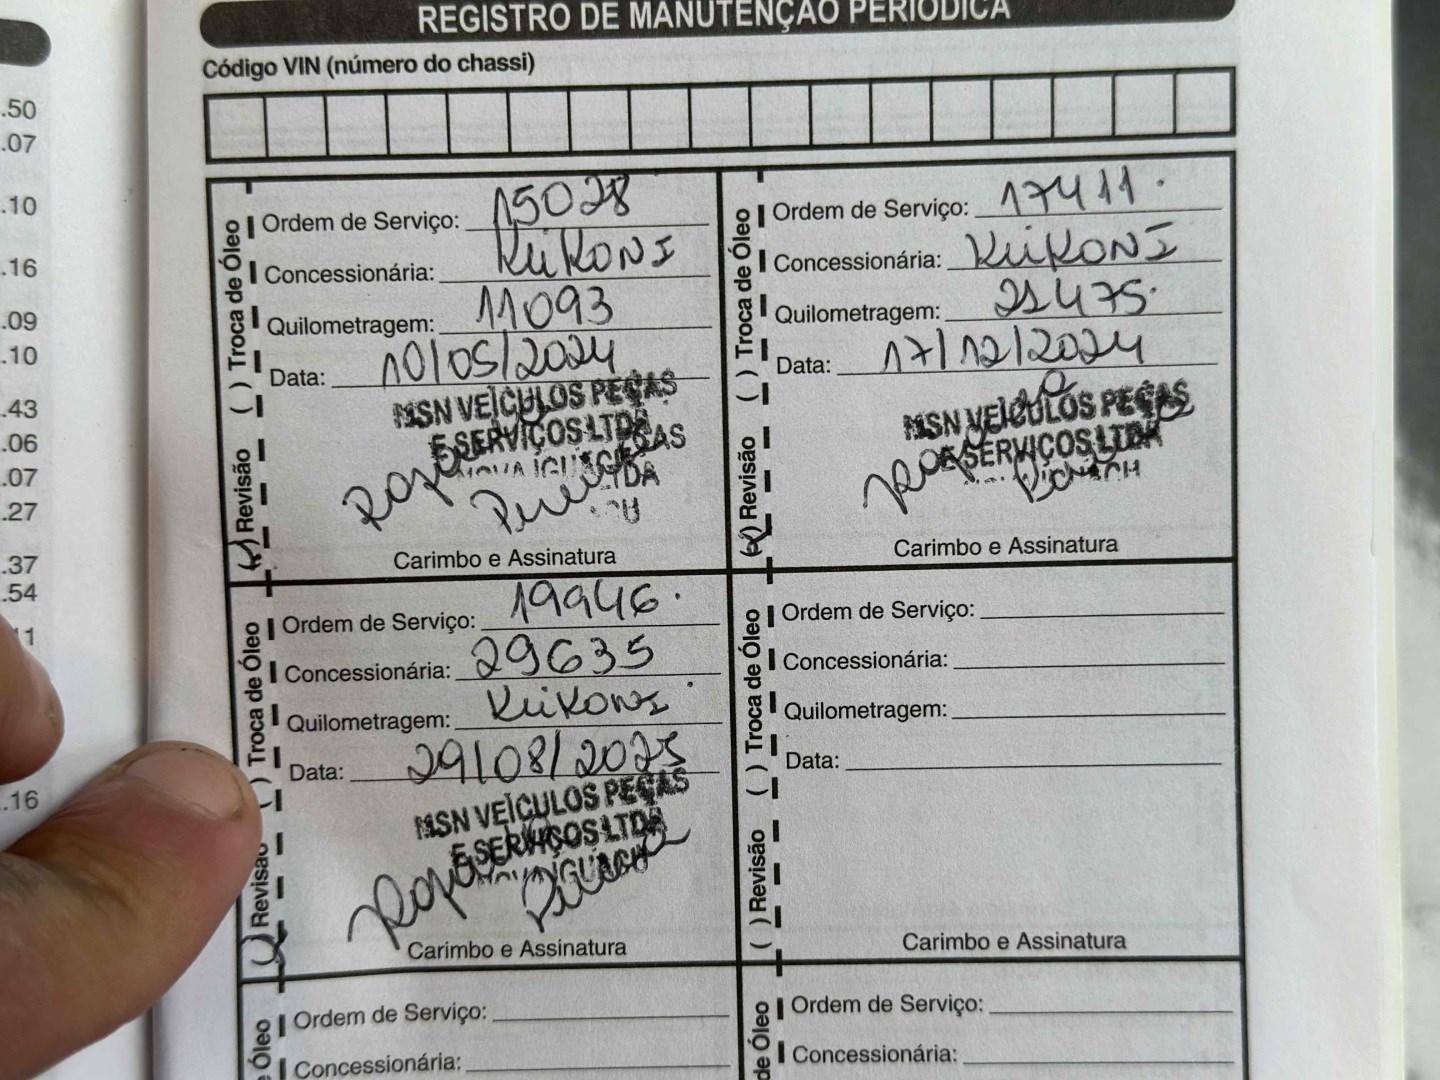 REGISTRO DE MANUTENÇÃO PERIÓDICA
Código VIN (número do chassi)
.50
.07
.10
.16
.09
.10
.43
.06
.07
.27
.37
.54
.16
( ) Troca de Óleo
Revisão
Ordem de Serviço: 15028
Concessionária: KeiKONI
Quilometragem: 11093
Data: 10/05/2024
MSN VEÍCULOS PEÇAS
E SERVIÇOS LTDA
Carimbo e Assinatura
( ) Troca de Óleo
(x) Revisão
Ordem de Serviço: 17411
Concessionária: KeiKONI
Quilometragem: 21475
Data: 17/12/2024
MSN VEÍCULOS PEÇAS
E SERVIÇOS LTDA
Carimbo e Assinatura
( ) Troca de Óleo
Revisão
Ordem de Serviço: 19946
Concessionária: 29635
Quilometragem: KeiKONI
Data: 29/08/2025
MSN VEÍCULOS PEÇAS
E SERVIÇOS LTDA
Carimbo e Assinatura
( ) Troca de Óleo
( ) Revisão
Ordem de Serviço:
Concessionária:
Quilometragem:
Data:
Carimbo e Assinatura
Óleo
Ordem de Serviço:
Concessionária:
de Óleo
Ordem de Serviço:
Concessionária: